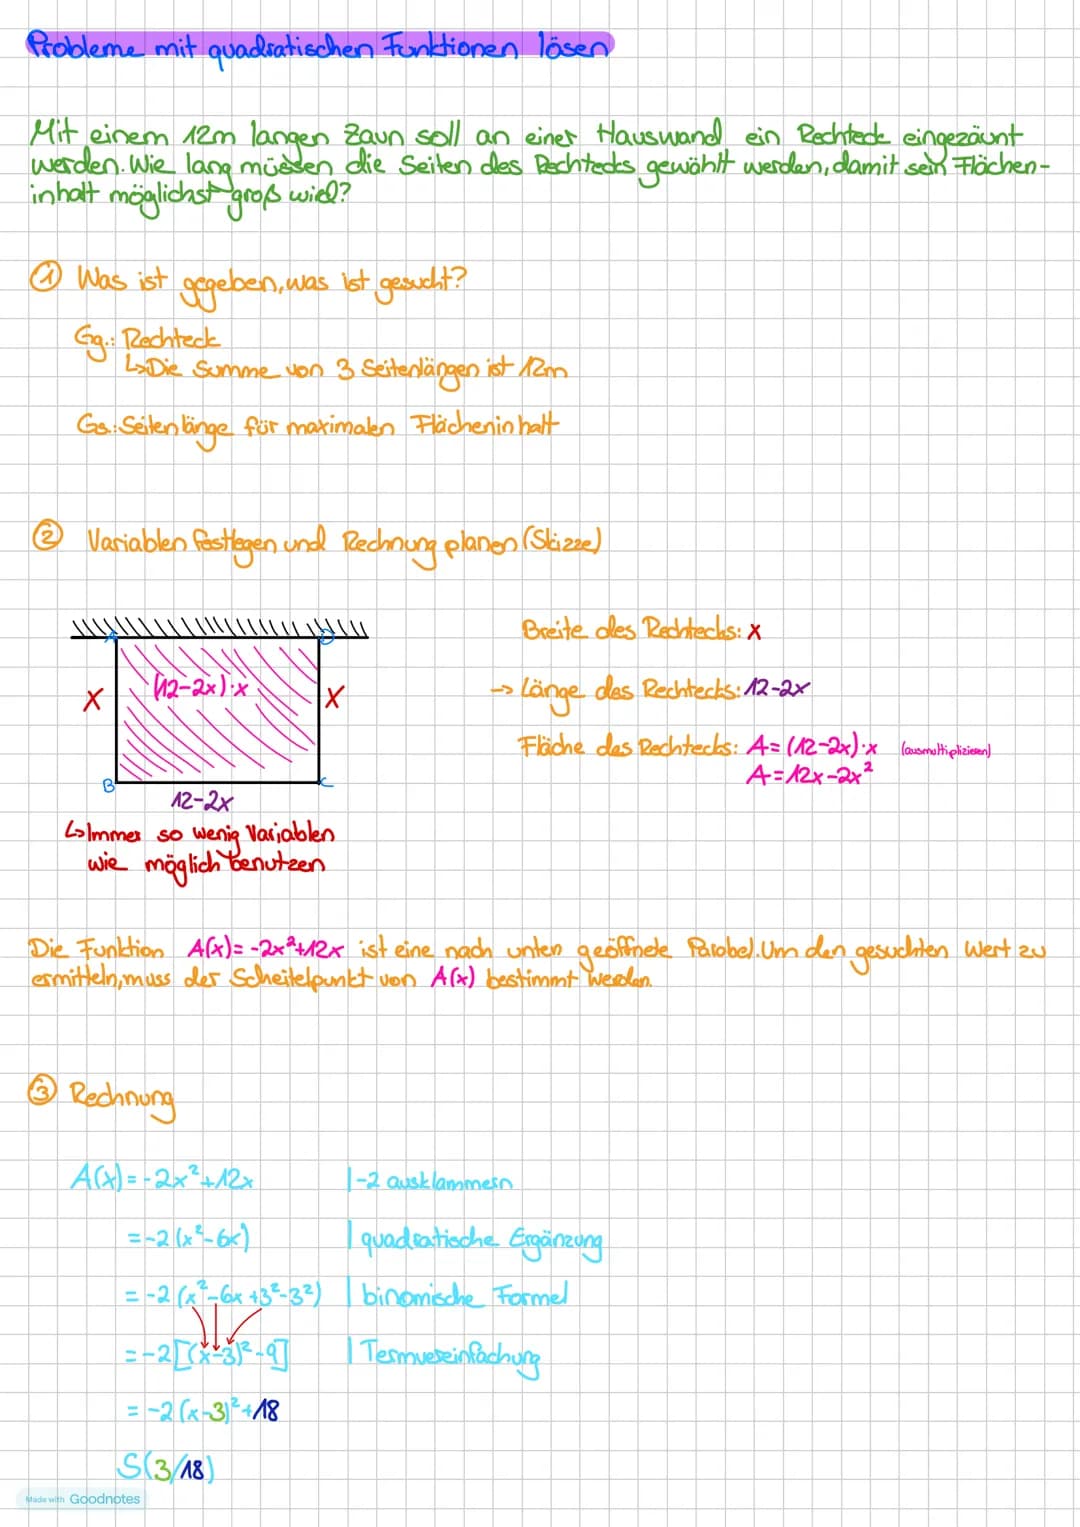 Probleme mit quadratischen Funktionen lösen
Mit einem 12m langen Zaun soll an einer Hauswand ein Rechteck eingezäunt
werden. Wie lang müssen die Seiten des Rechtecks gewählt werden, damit sein Flächen-
inhalt möglichst groß wird?
① Was ist gegeben, was ist gesucht?
Gg.: Rechteck
↳Die Summe von 3 Seitenlängen ist 12m
Gs.: Seitenlänge für maximalen Flächeninhalt
② Variablen festlegen und Rechnung planen (Skizze)
A D
x (12-2x)·x x
B C
12-2x
↳Immer so wenig Variablen
wie möglich benutzen
Breite des Rechtecks: x
→ Länge des Rechtecks: 12-2x
Fläche des Rechtecks: A=(12-2x)·x (ausmultiplizieren)
A=12x-2x²
Die Funktion A(x)=-2x²+12x ist eine nach unten geöffnete Parabel. Um den gesuchten Wert zu
ermitteln, muss der Scheitelpunkt von A(x) bestimmt werden.
③ Rechnung
A(x)=-2x²+12x |-2 ausklammern
=-2(x²-6x) | quadratische Ergänzung
=-2(x²-6x+3²-3²) | binomische Formel
=-2[(x-3)²-9] | Termvereinfachung
=-2(x-3)²+18
S(3/18)
Made with Goodnotes